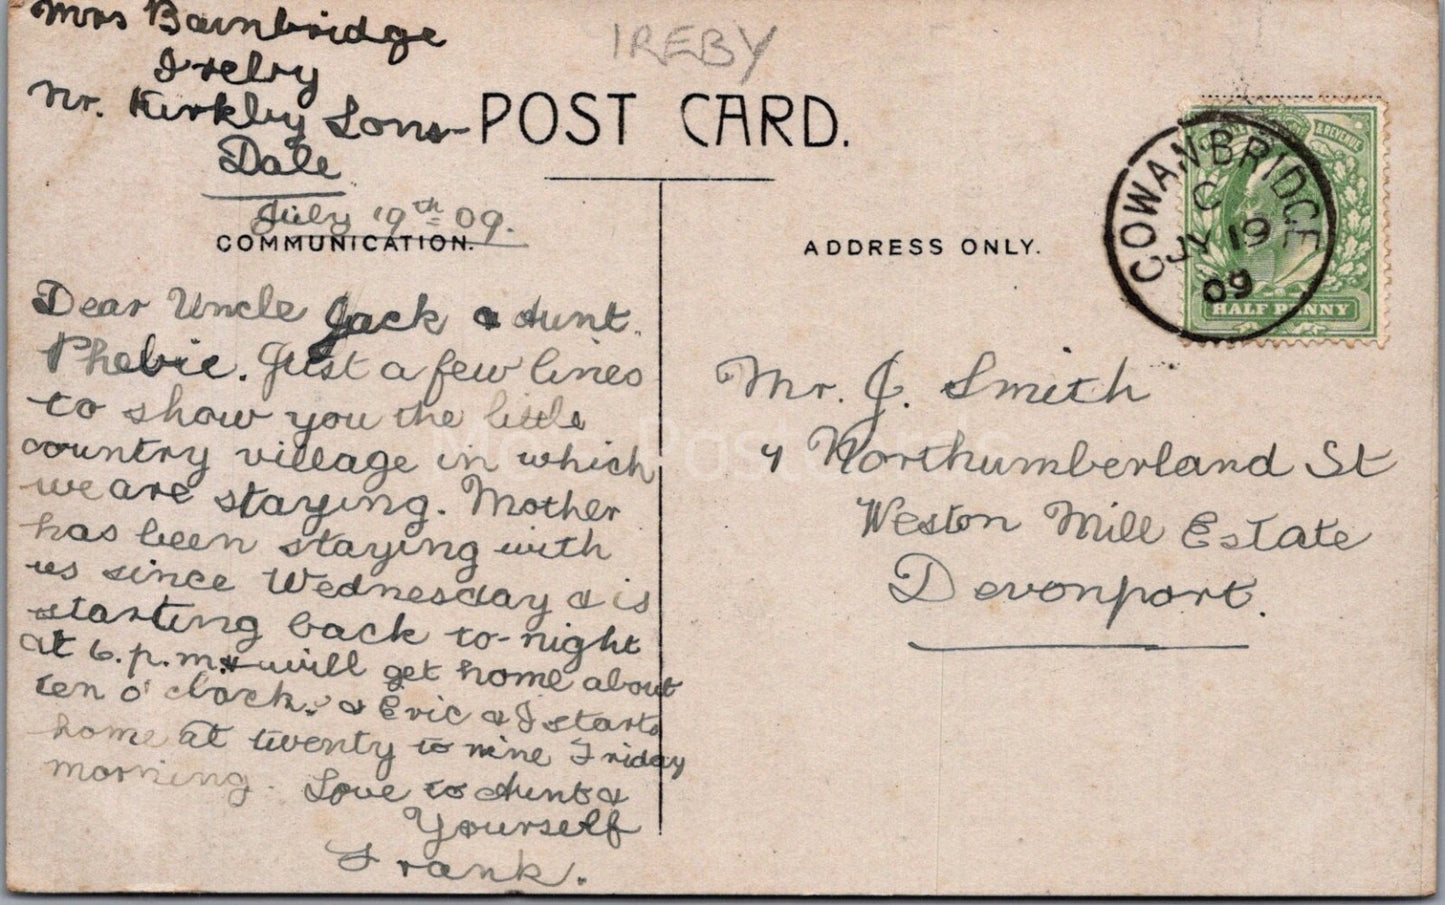 Mrs Bainbridge
Ireby
Nr. Kirkby Lons-
Dale
July 19th 09.
IREBY
POST CARD.
COMMUNICATION.
Dear Uncle Jack & Aunt
Phebie. Just a few lines
to show you the little
country village in which
we are staying. Mother
has been staying with
us since Wednesday & is
starting back to-night
at 6.p.m. & will get home about
ten o'clock. & Eric & I starts
home at twenty to nine Friday
morning. Love to Aunt &
Yourself
Frank.
ADDRESS ONLY.
COWANBRIDGE
C
JY 19
09
& REVENUE
HALF PENNY
Mr. J. Smith
4 Northumberland St
Weston Mill Estate
Devonport.